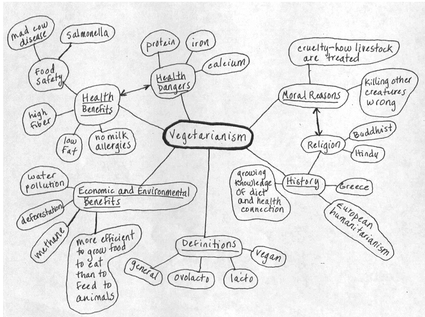 mad cow
disease
Salmonella
Food
Safety
high
Fiber
low
Fat
no milk
allergies
Health
Benefits
protein
iron
calcium
Health
Dangers
cruelty-how livestock
are treated
Moral Reasons
Killing other
creatures
wrong
Religion
Buddhist
Hindu
Vegetarianism
History
growing
knowledge
of diet
and health
connection
Greece
European
humanitarianism
water
pollution
deforestation
methane
Economic and Environmental
Benefits
more efficient
to grow food
to eat
than to
Feed to
animals
Definitions
general
ovolacto
lacto
vegan